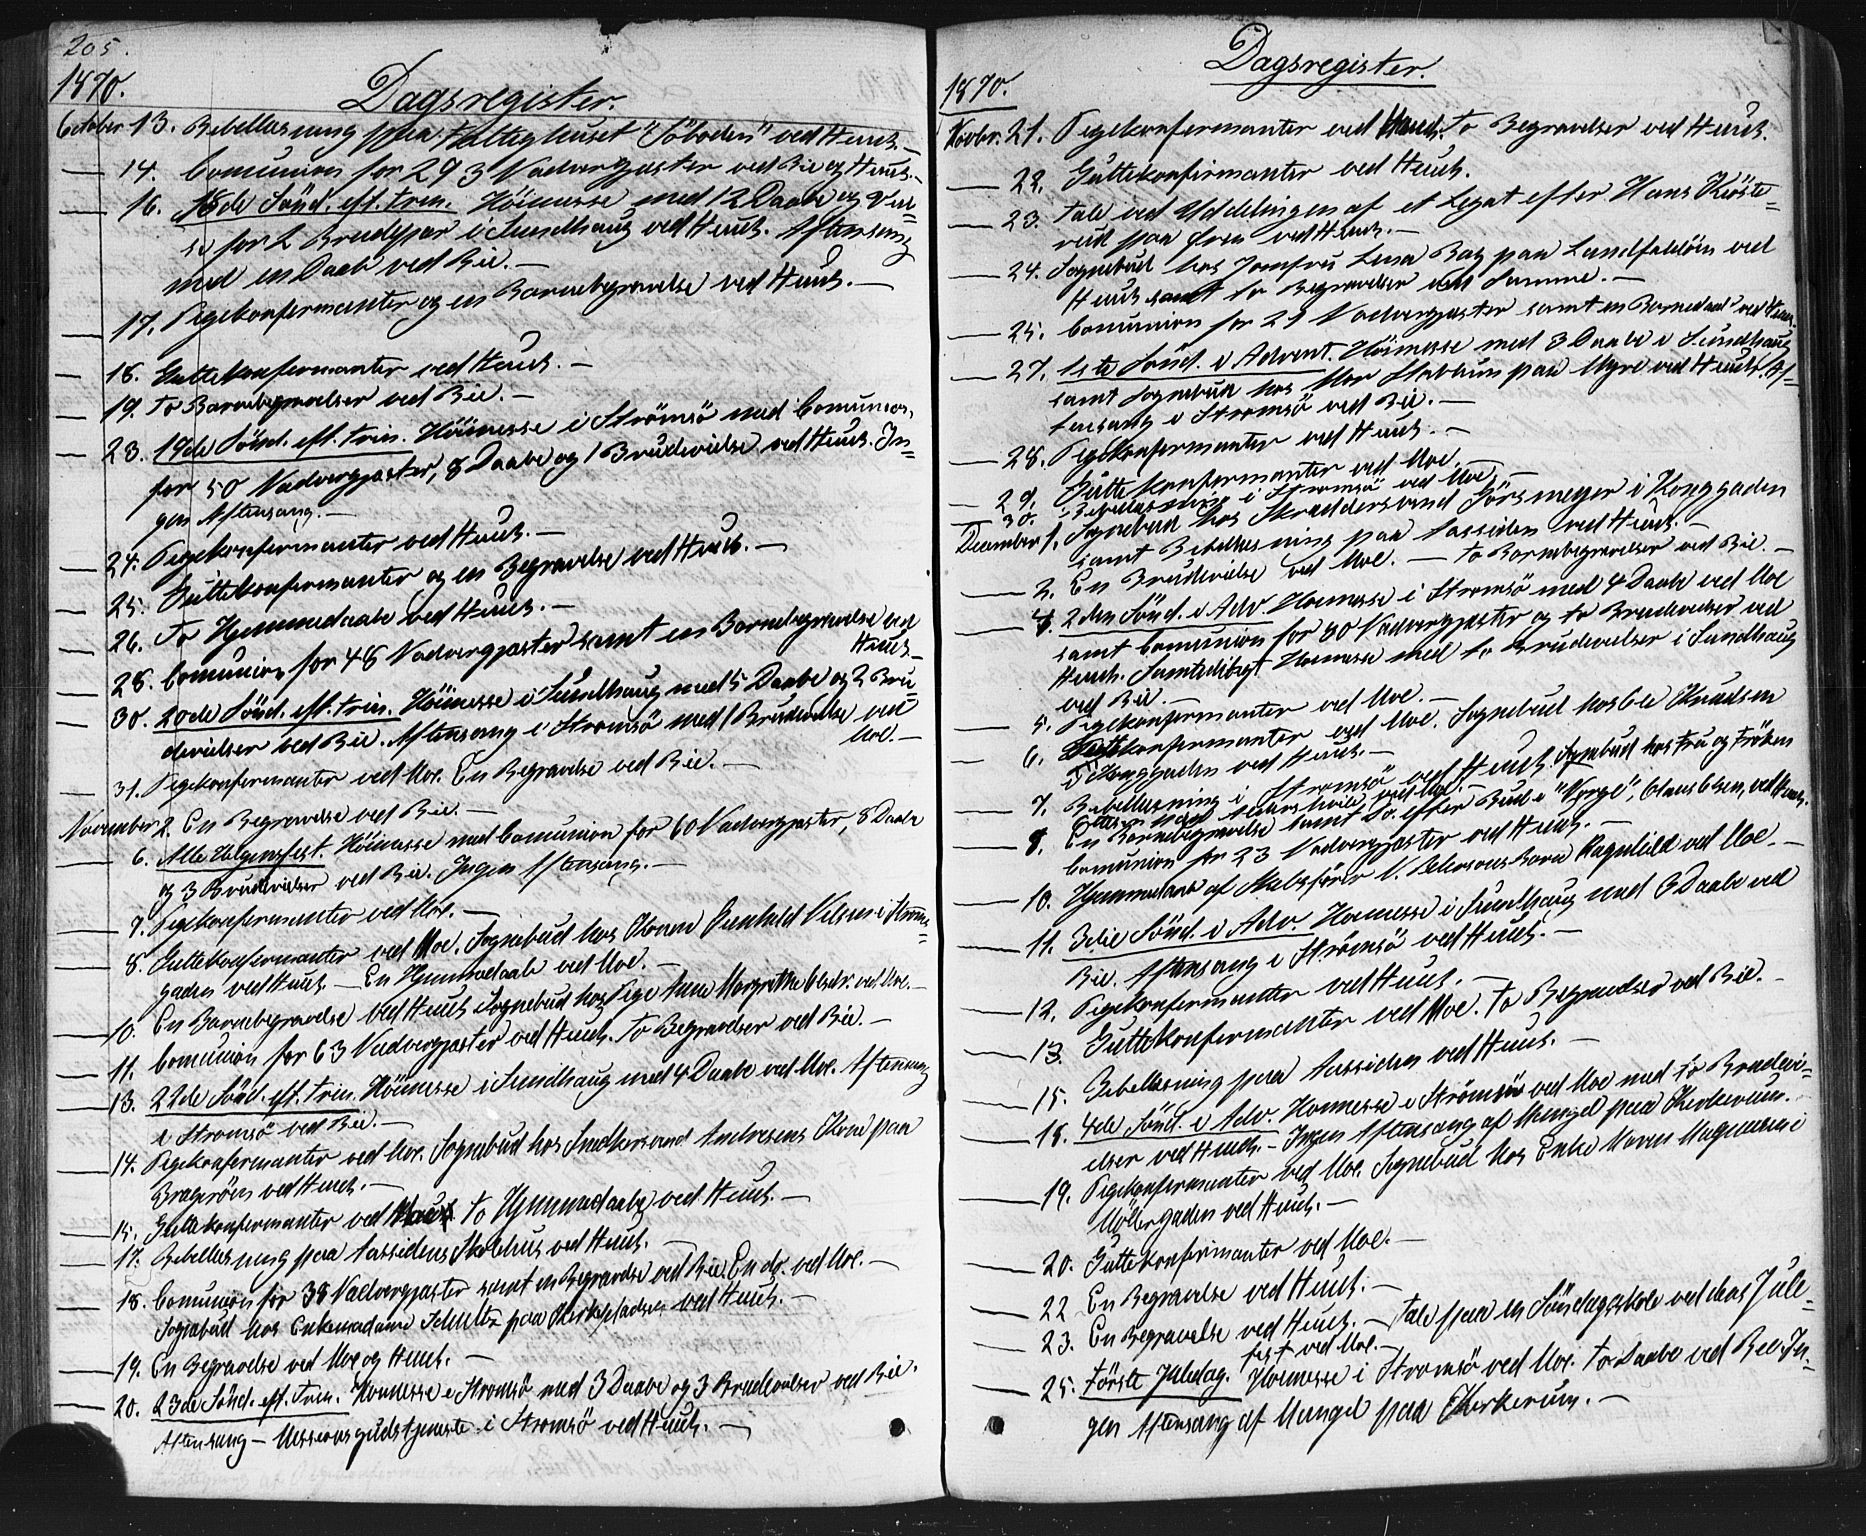 205.
1870.
Dagsregister.
October 13. Bibellæsning paa Fattighuset "Søboden" ved Huus.—
— 14. Comunion for 293 Nadvergjæster ved Bie og Huus.—
— 16. 18de Sönd. eft. Trin. Höimesse med 12 Daabe og Viel=
se for 2 Brudepar i Sundhaug ved Huus. Aftensang
med en Daab ved Bie.—
— 17. Pigekonfermanter og en Barnebegravelse ved Huus.—
— 18. Guttekonfermanter ved Huus.—
— 19. To Barnebegravelser ved Bie.—
— 23. 19de Sönd. eft. Trin. Höimesse i Strömsö med Comunion
for 50 Nadvergjæster, 8 Daabe og 1 Brudevielse ved Huus. In=
gen Aftensang.—
— 24. Pigekonfermanter ved Huus.—
— 25. Guttekonfermanter og en Begravelse ved Huus.—
— 26. To Hjemmedaabe ved Huus.—
— 28. Comunion for 48 Nadvergjæster samt en Barnebegravelse ved
Huus.—
— 30. 20de Sönd. eft. Trin. Höimesse i Sundhaug med 5 Daabe og 2 Bru=
devielser ved Bie. Aftensang i Strömsö med 1 Brudevielse ved
Moe.—
— 31. Pigekonfermanter ved Moe. En Begravelse ved Bie.—
November 2. En Begravelse ved Bie.—
— 6. Alle Helgensfest. Höimesse med Comunion for 60 Nadvergjæster, 8 Daabe
og 3 Brudevielser ved Bie. Ingen Aftensang.—
— 7. Pigekonfermanter ved Moe.—
— 8. Guttekonfermanter ved Moe. Sognebud hos Konen Gunhild Nilsen i Strøm=
gaden ved Huus — En Hjemmedaab ved Moe.—
— 10. En Barnebegravelse ved Huus Sognebud hos Pige Anne Margrethe Olsdr. ved Moe.—
— 11. Comunion for 63 Nadvergjæster ved Huus. To Begravelser ved Bie.—
— 13. 22de Sönd. eft. Trin. Höimesse i Sundhaug med 4 Daabe ved Moe. Aftensang
i Strömsö ved Bie.—
— 14. Pigekonfermanter ved Moe. Sognebud hos Snedkersvend Andresens Kone paa
Brageröen ved Huus.—
— 15. Guttekonfermanter ved To Hjemmedaabe ved Huus.—
— 17. Bibellæsning paa Tassidens Skolehus ved Huus.—
— 18. Comunion for 38 Nadvergjæster samt en Begravelse ved Bie. En do. ved Moe.—
Sognebud hos Enkemadame Schultz paa Kirkepladsen ved Huus.—
— 19. En Begravelse ved Moe og Huus.—
— 20. 23de Sönd. eft. Trin. Höimesse i Strömsö med 3 Daabe og 3 Brudevielser ved Bie.
Aftensang — Missionsgudstjeneste i Strömsö ved Huus.—
Dagsregister.
1870.
Novbr. 21. Pigekonfermanter ved Huus. To Begravelser ved Huus.
— 22. Guttekonfirmanter ved Huus.
— 23. Tale ved Uddelingen af et Legat efter Hans Kiöste=
rud paa ved Huus.—
— 24. Sognebud hos Jomfru Lena Bay paa Landfaldöen ved
Huus samt to Begravelser ved Samme.—
— 25. Comunion for 21 Nadvergjæster samt en Barnedaab ved Huus.
— 27. 1ste Sönd. i Advent. Höimesse med 3 Daabe i Sundhaug
samt Sognebud hos Mor paa Myre ved Huus. Af=
tensang i Strömsö ved Bie.—
— 28. Pigekonfermanter ved Huus.—
— 29. Guttekonfermanter ved Moe.—
30. Bibellæsning i Strömsö ved Moe.—
December 1. Sognebud hos Skræddersvend Görsmeyer i Konggaden
samt Bibellæsning paa Tassiden ved Huus.—
— 2. En Brudevielse ved Moe.— To Barnebegravelser ved Bie.—
— 4. 2den Sönd. i Adv. Höimesse i Strömsö med 4 Daabe ved Moe
samt Comunion for 80 Nadvergjæster og to Brudevielser ved
Huus. Samtidigt Höimesse med to Brudevielser i Sundhaug
ved Bie.—
— 5. Pigekonfermanter ved Moe.—
— 6. Guttekonfermanter ved Moe. Sognebud hos Ole Knudsen
i Konggaden ved Huus.—
— 7. Bibellæsning i Strömsö ved Huus. Sognebud hos Fru og Fröken
ved Moe.—
— 8. En Barnebegravelse samt Do. efter Bud i "Norge", Claus Olsen, ved Huus.
Comunion for 23 Nadvergjæster ved Huus.—
— 10. Hjemmedaab af Skibsförer N. Pedersens Barn Ragnhild ved Moe.—
— 11. 3die Sönd. i Adv. Höimesse i Sundhaug med 3 Daabe ved
Bie. Aftensang i Strömsö ved Huus.—
— 12. Pigekonfermanter ved Huus.—
— 13. Guttekonfermanter ved Moe. To Begravelser ved Bie.—
— 15. Bibellæsning paa Tassiden ved Huus.—
— 18. 4de Sönd. i Adv. Höimesse i Strömsö ved Moe med to Brudevi=
elser ved Huus.— Ingen Aftensang af Mangel paa Kirkerum.—
— 19. Pigekonfermanter ved Moe. Sognebud hos Enke Maren Magnussen i
Möllergaden ved Huus.—
— 20. Guttekonfirmanter ved Moe.—
— 22 En Begravelse ved Huus.—
— 23. En Begravelse ved Huus.— Tale paa en Söndagsskole ved dens Jule=
fest ved Moe.—
— 25. Förste Juledag. Höimesse i Strömsö ved Moe. To Daabe ved Bie. In=
gen Aftensang af Mangel paa Kirkerum.—